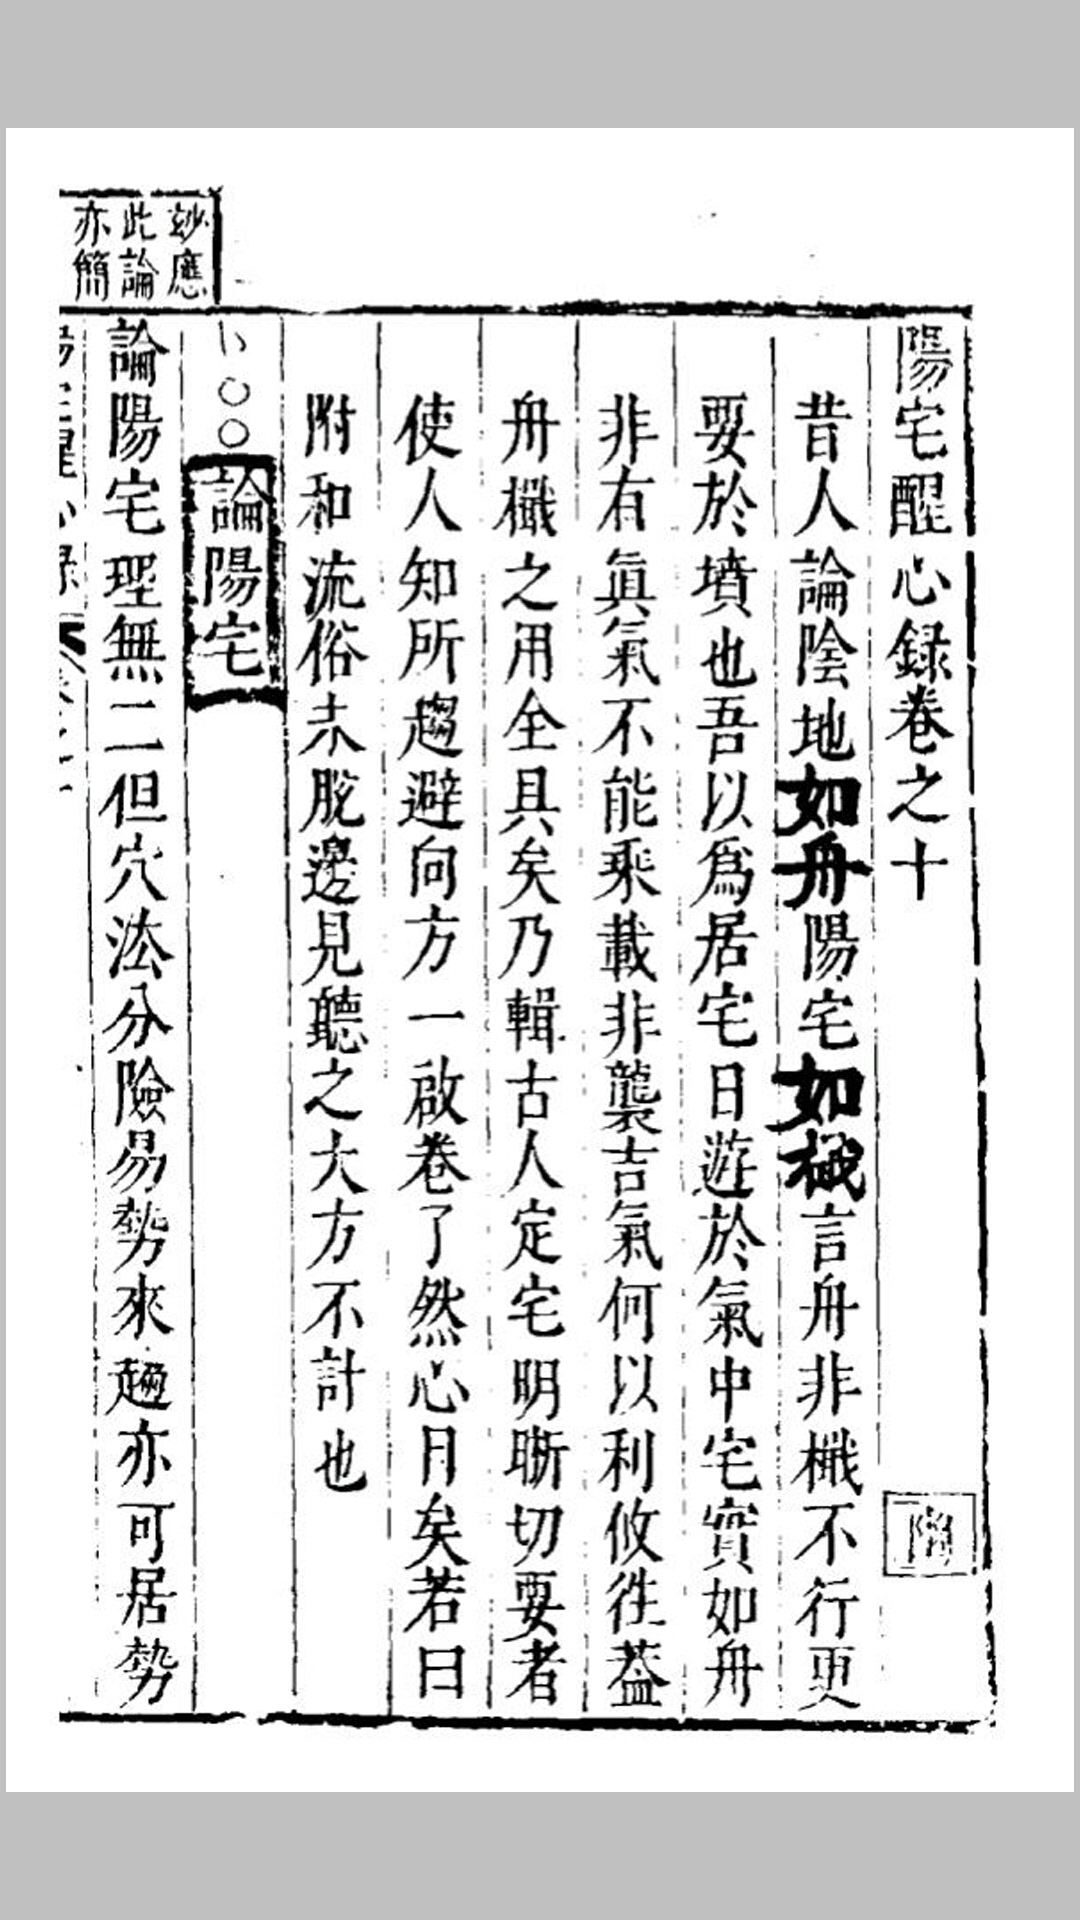 陽宅醒心録卷之十
昔人論陰地如舟陽宅如檝言舟非檝不行更
要於墳也吾以爲居宅日遊於氣中宅實如舟
非有眞氣不能乘載非襲吉氣何以利攸徃蓋
舟檝之用全具矣乃輯古人定宅明晰切要者
使人知所趨避向方一啟卷了然心目矣若曰
附和流俗未脫邊見聽之大方不計也
論陽宅
妙應
此論
亦簡
論陽宅理無二但穴法分險易勢來趨亦可居勢
陽宅醒心録